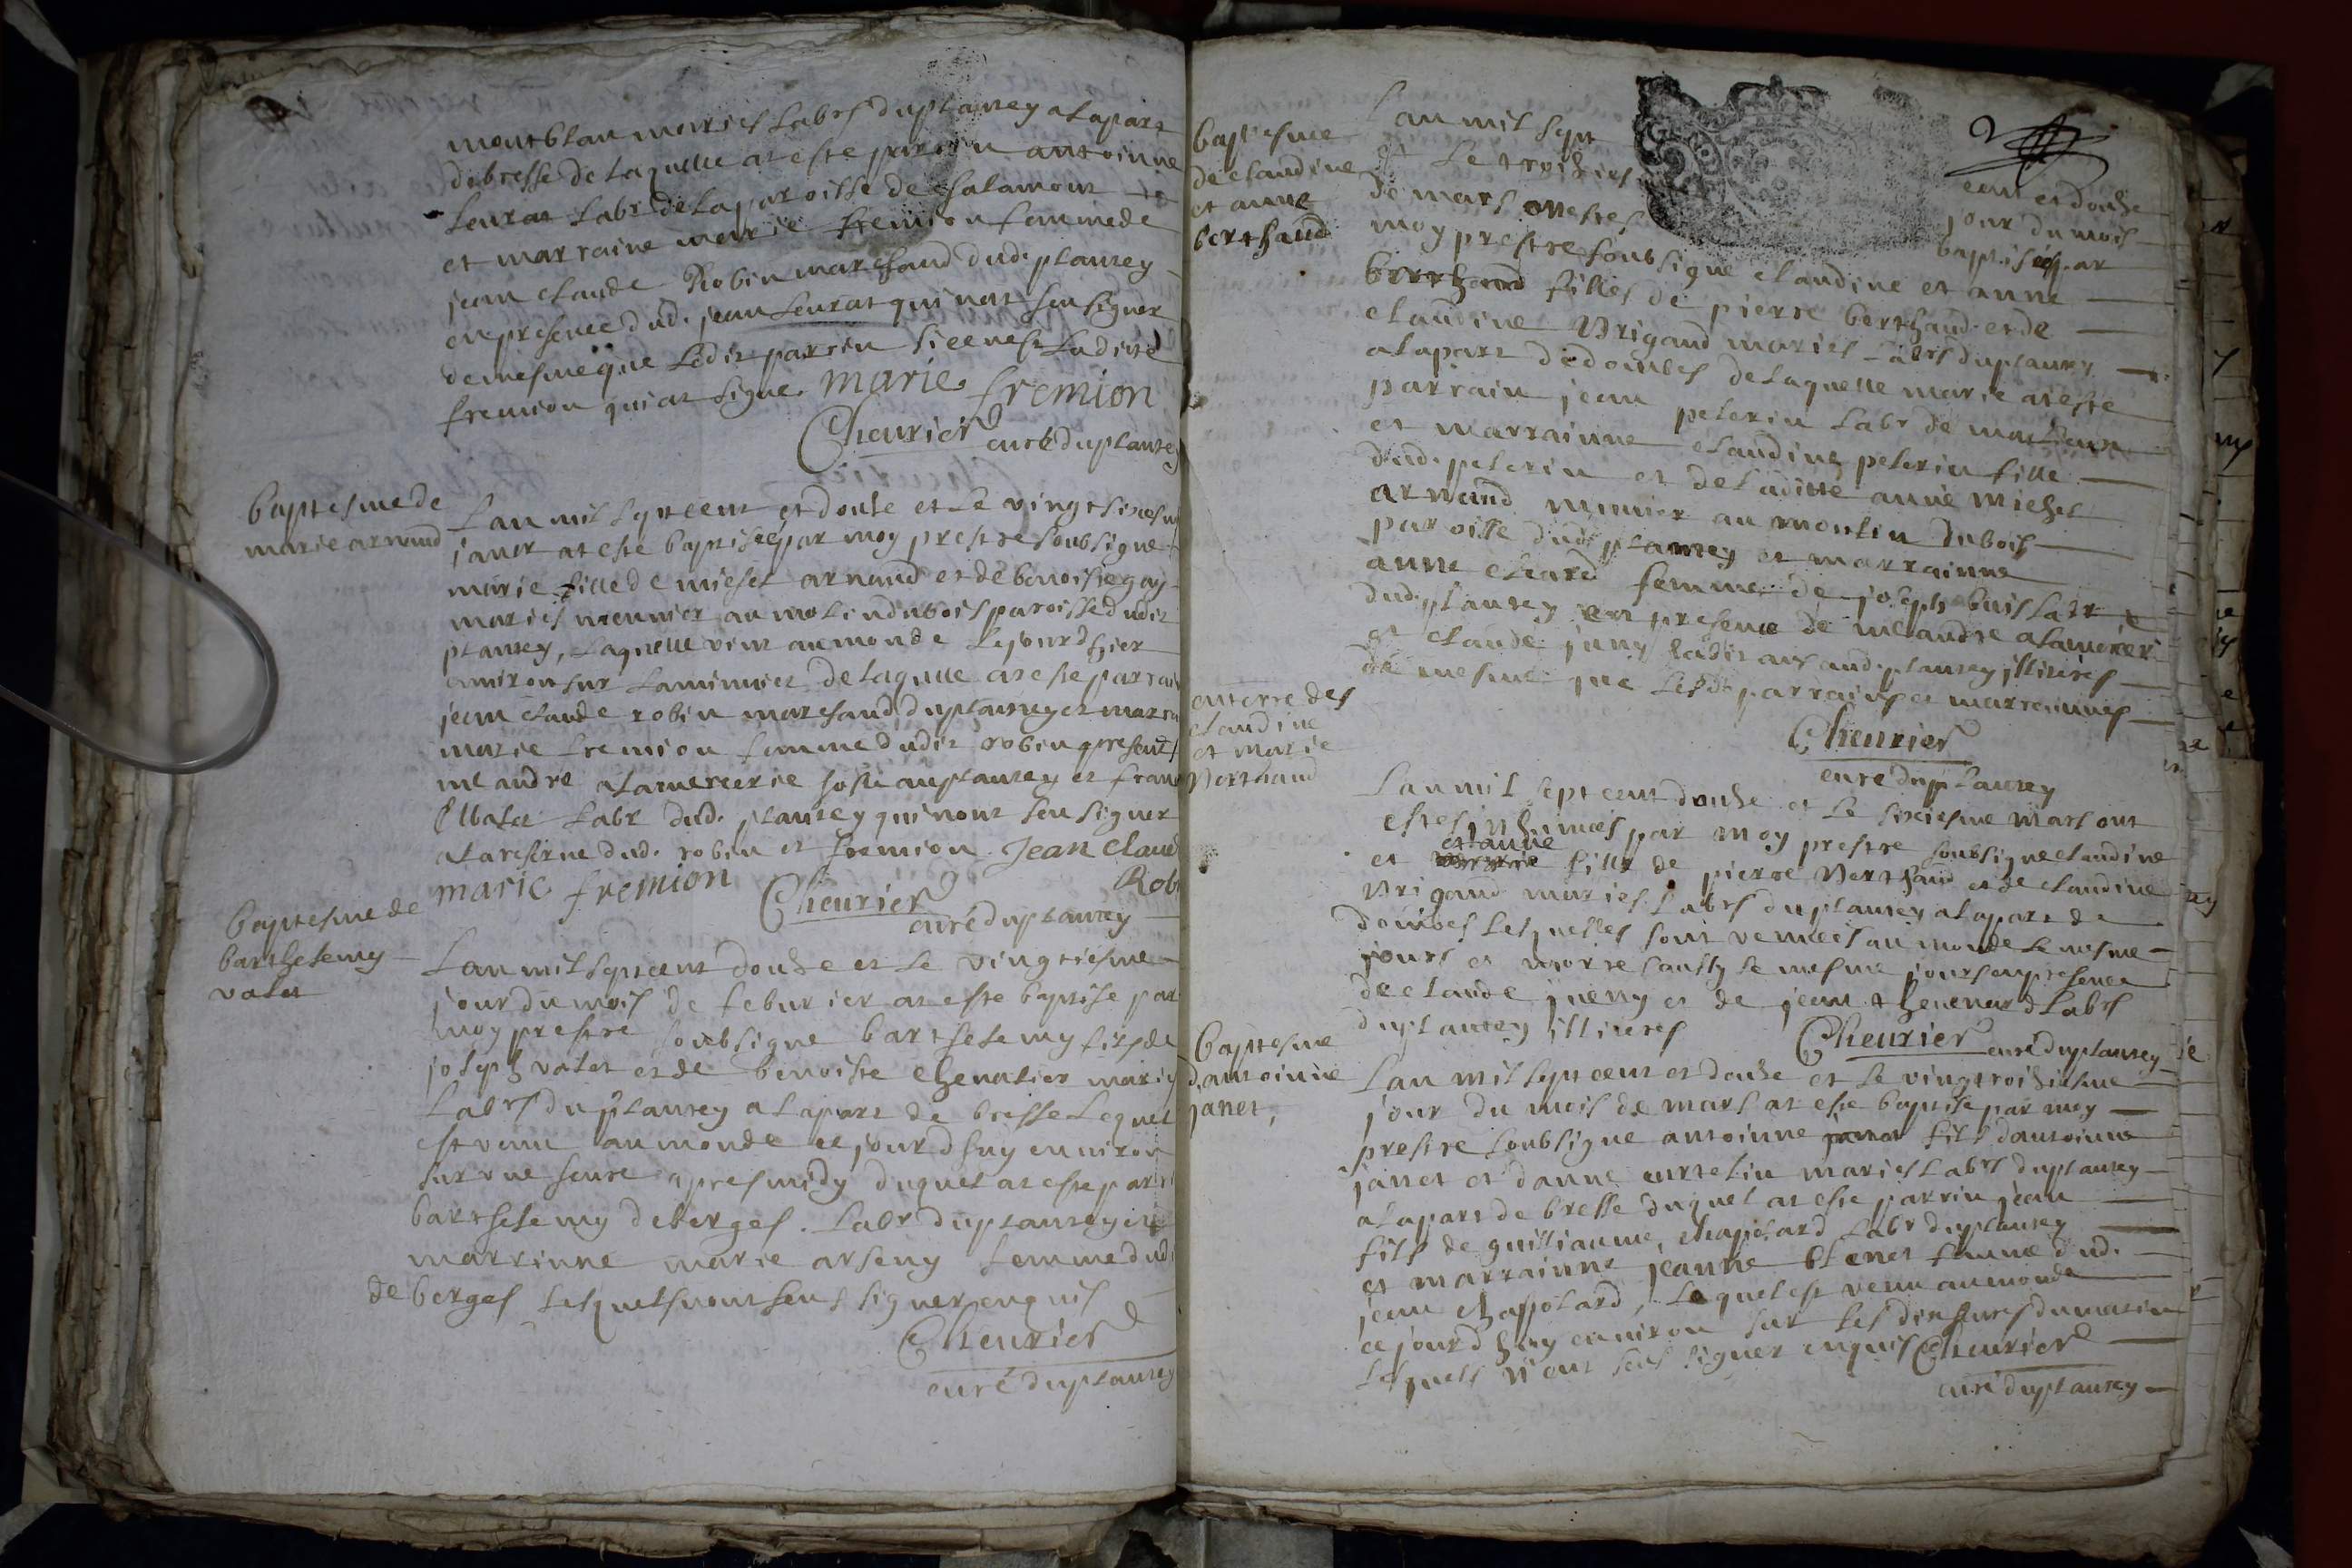 montblan mariés labrs duplantey alapart
debresse delaquelle at este parrin antoinne
leurat labr de la paroisse de chalamont
et marraine marie fremion femme de
jean claude Robin marchand dud. plantey
en presence dud. jean leurat qui nat seu signer
de mesme que ledit parrin si ce nest ladite
fremion qui at signe. marie fremion
Cheurier curé duplantey
baptesme de
marie arnaud
Lan mil sept cent et douse et le vingt sixesme
janer at esté baptiséé par moy prestre soubsigne
marie fille de michel arnaud et de benoiste gay
mariés meunier au molin du bois paroisse dudit
plantey, laquelle vint au monde lejourdhier
environ sur laminuict delaquelle at este parrain
jean claude robin marchand duplantey et marra
marie fremion femme dudit robin presents
me andré alamercerie hoste au plantey et franc
labr dud. plantey qui nont seu signer
ala reserve dud. robin et fremion. Jean claud
Robi
marie fremion Cheurier
curé duplantey
baptesme de
barthelemy
volet
Lan mil sept cent douse et le vingtiesme
jour du mois de feburier at este baptise par
moy prestre soubsigne barthelemy fils de
joseph volet et de benoiste chevalier mariés
labrs du plantey alapart de bresse lequel
est venu au monde ce jourdhuy environ
sur une heure apres midy duquel at este parri
barthelemy deberges. labr duplantey et
marrinne marie arseny femme dud
de berges lesquels nont seus signer enquis
Cheurier
curé duplantey
baptesme
de claudine
et anne
berthaud
Lan mil sept cent et douse
et le troisies jour du mois
de mars ont estes baptiséés par
moy prestre soubsigne claudine et anne
berthaud filles de pierre berthaud et de
claudine Vrigaud mariés labrs duplantey
alapart de dombes delaquelle marie at esté
parrain jean pelerin labr de
et marrainne claudine pelerin fille
dud. pelerin et de laditte anne michel
arnaud munier au moulin du bois
paroisse dud plantey et marrainne
anne chard femme de joseph buis labr
dud. plantey en presence de me andre alamercerie
et claude jueny aud. plantey illiterés
de mesme que lesd parrains et marrainnes
Cheurier
curé duplantey
enterre des
claudine
et marie
Verthaud
Lan mil sept cent douse et le sixiesme mars ont
estes inhumées par moy prestre soubsigne claudine
et anne
et fille de pierre Verthaud et de claudine
Vrigaud mariés labrs duplantey alapart de
dombes lesquelles sont venues au monde le mesme
jours et morte saussy le mesme jours en presence
de claude jueny et de jean thevenard labrs
duplantey illiteres Cheurier curé duplantey
baptesme
dantoinne
janet,
Lan mil sept cent et douse et le vingt troisiesme
jour du mois de mars at este baptise par moy
prestre soubsigne antoinne janet fils dantoinne
janet et danne mariés labrs duplantey
alapart de bresse duquel at este parrin jean
fils de guilliaume chapolard labr duplantey
et marrainne jeanne blenet femme dud.
jean chappolard, lequel est venu au monde
ce jourdhuy environ sur les dix heures du matin
lesquels n'ont seus signer enquis Cheurier
curé duplantey